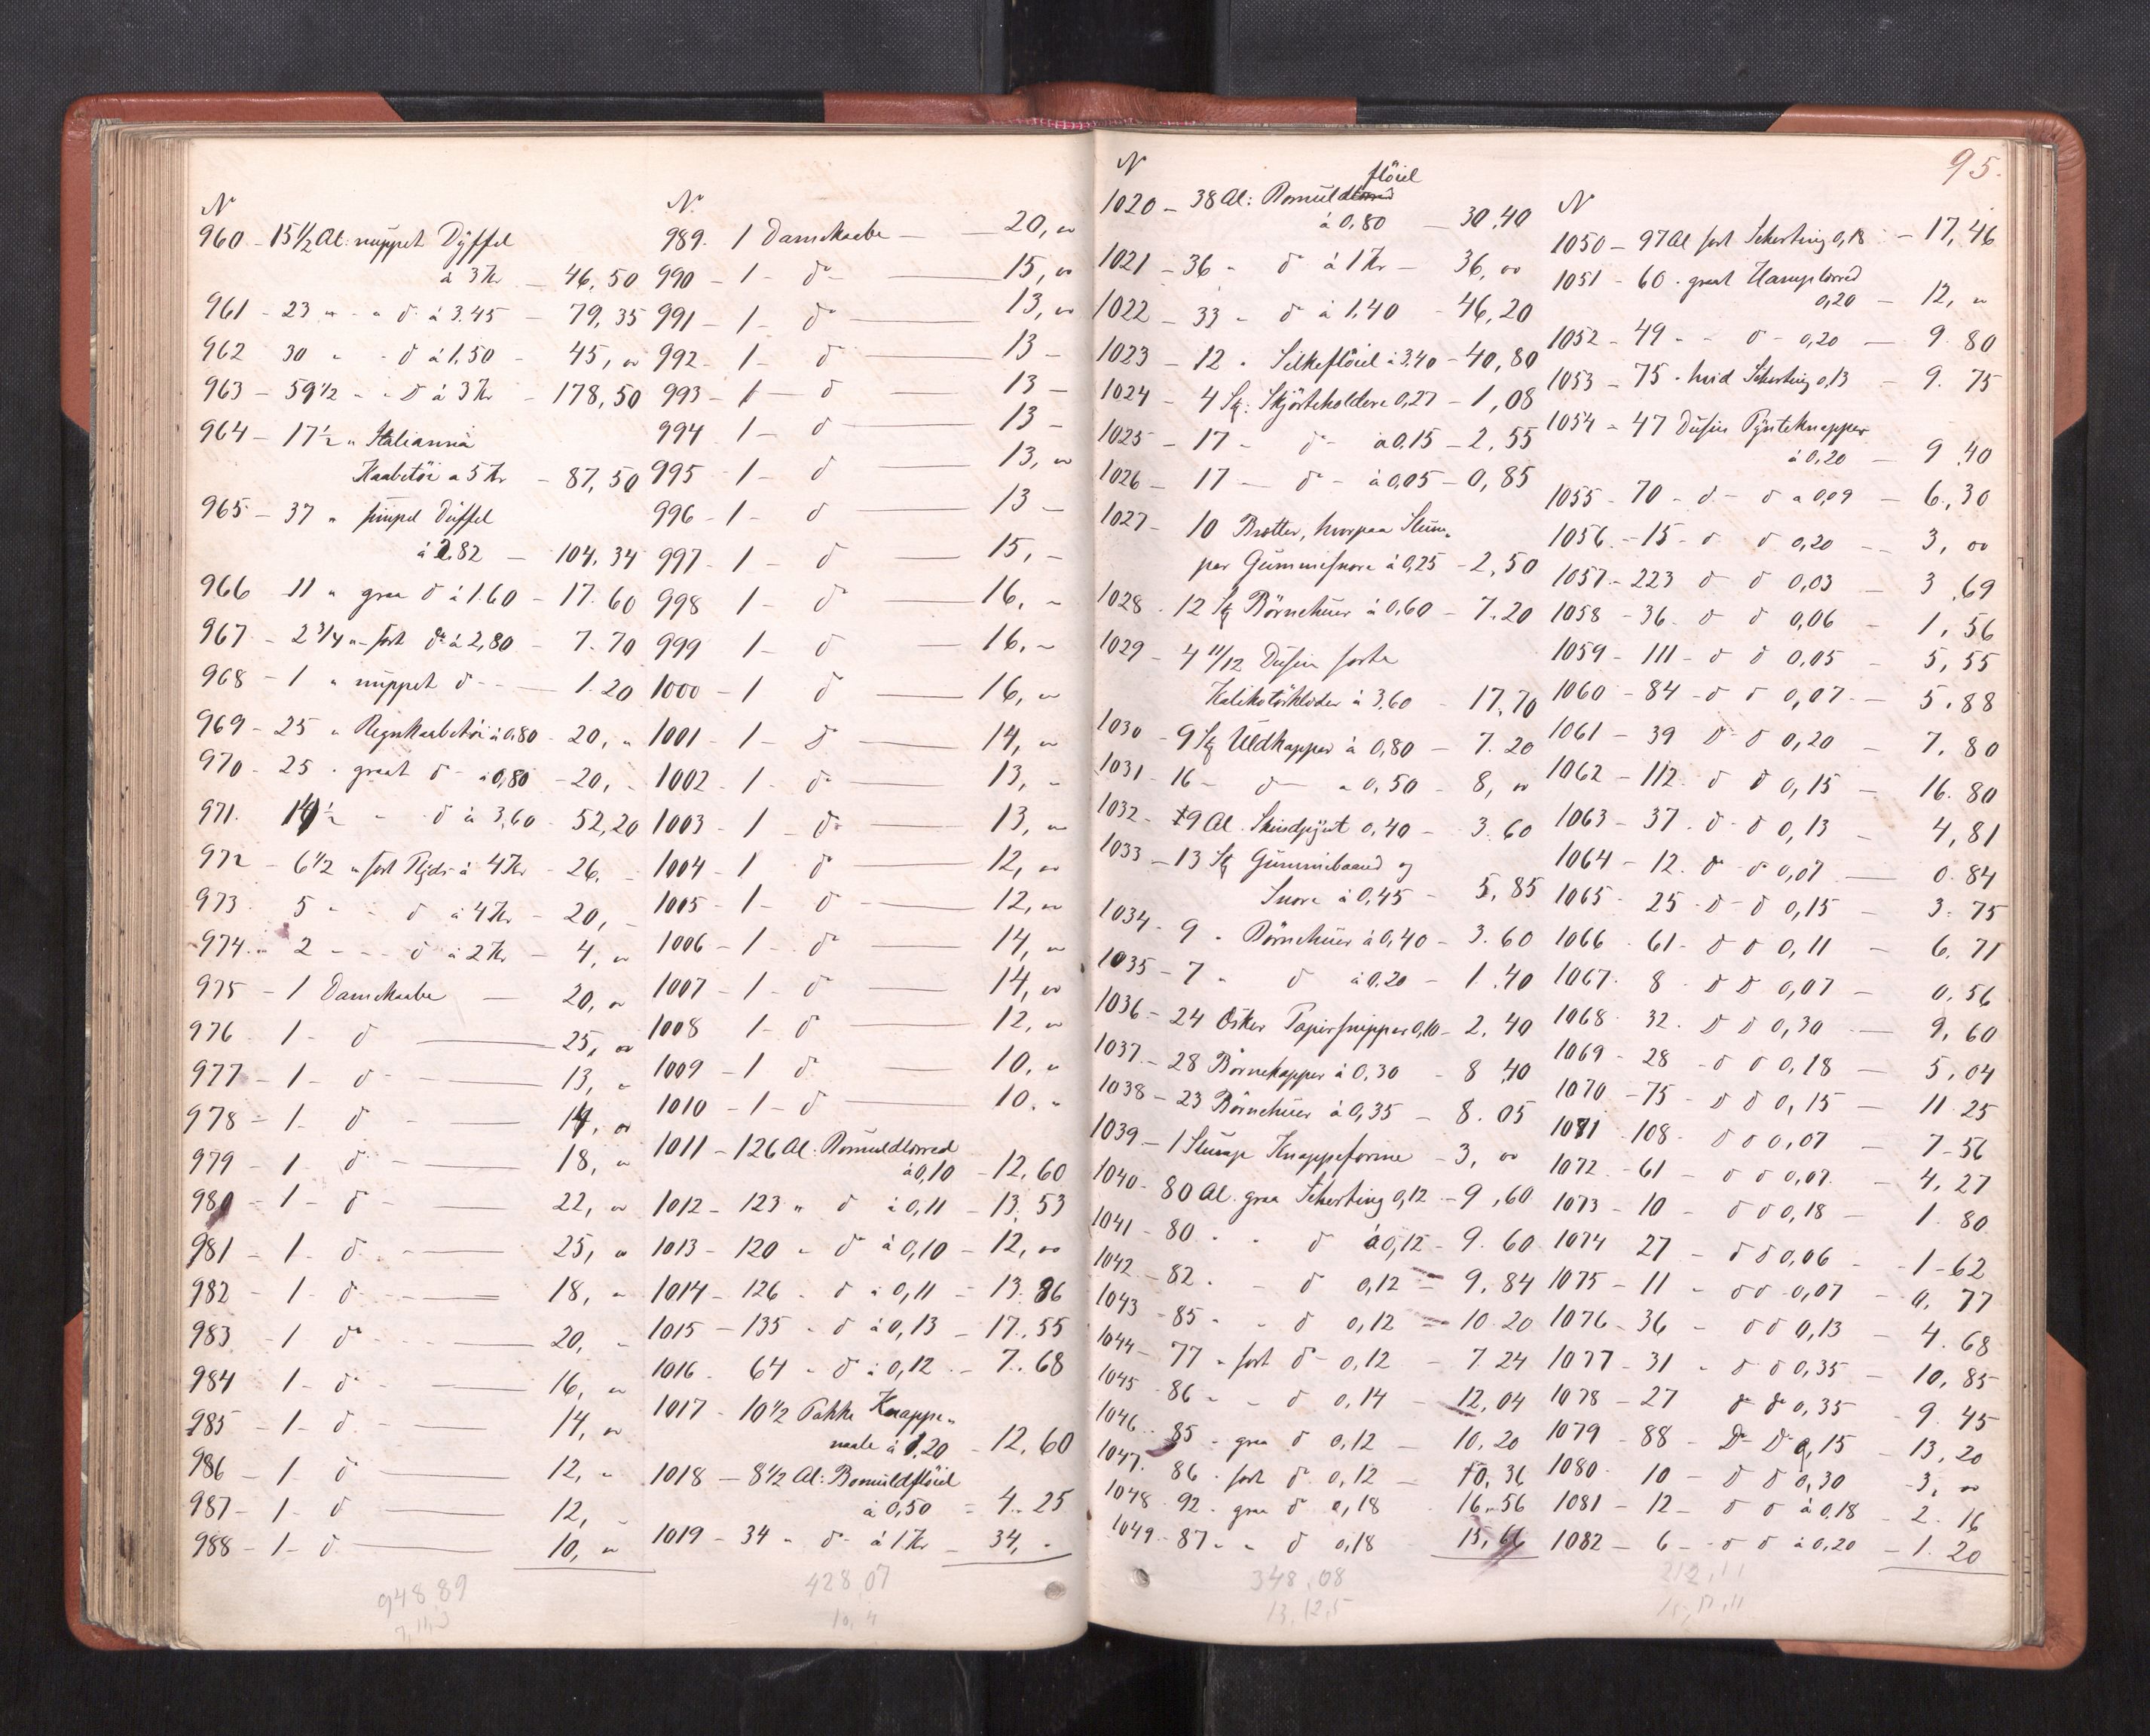 N
960 - 15 1/2 Al: nuppet Dyffel
à 3 Kr - 46,50
961 - 23 " - " do à 3.45 - 79,35
962 30 " - do à 1,50 - 45, "
963 - 59 1/2 " - Do à 3 Kr - 178,50
964 - 17 1/2 " Italianna
Kaabetöi a 5 Kr - 87,50
965 - 37 " simpel Düffel
à 2.82 - 104,34
966 11 " graa do à 1.60 - 17.60
967 - 2 3/4 " - sort do à 2,80 - 7.70
968 - 1 " nuppet do - - 1.20
969 - 25 " Regnkaabetöi à 0.80 - 20, "
970 - 25 " graat do - à 0,80 - 20, "
971. 14 1/2 " do à 3,60 - 52,20
972 - 6 1/2 " sort à 4 Kr - 26. -
973 5 " - do à 4 Kr - 20, -
974 - 2 - - - do à 2 Kr - 4, "
975 - 1 Damekaabe - 20, "
976 1 - do - 25, oo
977 - 1 - do - 13, "
978 - 1 - do - 14, "
979 - 1 - do - 18, "
980 - 1 - do - 22, "
981 - 1 - do - 25, "
982 - 1 - do - 18, "
983 - 1 do - 20, "
984 1 - do - 16, "
985 - 1 - do - 14, "
986 - 1 - do - 12, "
987 - 1 - do - 12, "
988 - 1 - do - 10, "
948,89
N.
989. 1 Damekaabe - 20, "
990 - 1 - do - 15, oo
991 - 1 - do - 13, "
992 - 1 - do - 13 -
993 - 1 - do - 13 -
994 1 - do - 13 -
995 - 1 - do - 13, "
996 - 1 - do - 13 -
997 - 1 - do - 15, -
998 1 - do - 16, -
999 1 - do - 16, -
1000 - 1 do - 16, "
1001 - 1 - do - 14, "
1002 - 1 - do - 13, -
1003 - 1 - do - 13, "
1004 - 1 do - 12, "
1005 - 1 - do - 12, "
1006 - 1 - do - 14, "
1007 - 1 - do - 14, oo
1008 1 - do - 12, "
1009 - 1 do - 10, "
1010 - 1 - do - 10, "
1011 - 126 Al: Bomuldlorred
à 0,10 - 12,60
1012 - 123 " do à 0,11 - 13,53
1013 - 120 " do à 0,10 - 12, oo
1014 - 126 " do à 0,11 - 13.86
1015 - 135 " do à 0,13 - 17.55
1016. 64 " do à 0,12 - 7.68
1017 - 10 1/2 Pakke Knappe"
naale à 1,20 - 12,60
1018 - 8 1/2 Al: Bomuldflöiel
à 0,50 - 4.25
1019 - 34 " do à 1 Kr - 34, -
428,07
10,4
N
flöiel
1020 - 38 Al: Bomuldlorred
à 0,80 - 30.40
1021 - 36 " do à 1 Kr - 36, oo
1022 - 33 - do à 1,40 - 46,20
1023 - 12 " Silkeflöiel à 3.40 - 40,80
1024 - 4 Stk: Skjörteholdere 0,27 - 1,08
1025 - 17 - do - à 0.15 - 2,55
1026 - 17 - do - à 0,05 - 0,85
1027 - 10 Bretter, hvorpaa Stum-
per Gummisnore à 0,25 - 2,50
1028 - 12 Stk Börnehuer à 0.60 - 7.20
1029 - 4 11/12 Dusin sorte
Kalikotörklæder à 3,60 - 17.70
1030 - 9 Stk Uldkapper à 0,80 - 7.20
1031 - 16 - do - a 0,50 - 8, oo
1032 - 9 Al. Skindpynt 0,40 - 3.60
1033 - 13 Stk Gummibaand og
Snore à 0,45 - 5,85
1034 - 9 " Börnehuer à 0,40 - 3.60
1035 - 7 " do à 0.20 - 1.40
1036 - 24 Æsker Papirsnipper 0,10 - 2,40
1037 - 28 Börnekapper à 0,30 - 8,40
1038 - 23 Börnehuer à 0,35 - 8.05
1039 - 1 Stump Knappeforme - 3, oo
1040 - 80 Al. graa Schorting 0,12 - 9,60
1041 - 80 " do à 0,12 - 9.60
1042 - 82 " - do 0,12 - 9.84
1043 - 85 - " do 0,12 - 10.20
1044 - 77 " sort do - 0,12 - 7.24
1045 - 86 - " do 0,14 - 12,04
1046 - 85 - graa do 0,12 - 10,20
1047. 86 " sort do 0,12 - 10,36
1048 - 92 - graa do 0,18 16.56
1049 - 87 - " do 0,18 15,66
348,08
13,12,5
95.
N
1050 - 97 Al sort Schorting 0,18 - 17,46
1051 - 60 " graat Hamplorred
0,20 - 12, "
1052 - 49 - - do - 0,20 - 9.80
1053 - 75 - hvid Schorting 0,13 - 9.75
1054 - 47 Dusin Pynteknapper
à 0,20 - 9.40
1055 - 70 - do - do a 0,09 - 6,30
1056 - 15 - do do 0,20 - 3, oo
1057 - 223 do do 0,03 3,69
1058 - 36 - do do 0,06 - 1,56
1059 - 111 - do do 0,05 - 5,55
1060 - 84 - do do 0,07 - 5.88
1061 - 39 do - do 0,20 - 7,80
1062 - 112 - do do 0,15 - 16.80
1063 - 37 - do - do 0,13 - 4,81
1064 - 12. do - do 0,07 - 0.84
1065 - 25 - do - do 0,15 - 3.75
1066 - 61 - do do 0,11 - 6.71
1067 - 8 - do do 0,07 - 0,56
1068 - 32. do do 0,30 - 9,60
1069 - 28 - do do 0,18 - 5,04
1070 - 75 - do do 0,15 - 11.25
1071 - 108 - do do 0,07 - 7-56
1072 - 61 - do do 0,07 - 4,27
1073 - 10 - do do 0,18 - 1.80
1074 27 - do do 0,06 - 1-62
1075 - 11 - do do 0,07 - 0.77
1076 - 36 - do do 0,13 - 4.68
1077 - 31 - do do 0,35 - 10,85
1078 - 27 do do 0,35 - 9.45
1079 - 88 - Do - Do 0,15 - 13,20
1080 - 10 - do do 0,30 - 3, oo
1081 - 12 - do do à 0,18 - 2.16
1082 - 6 - do do à 0,20 - 1.20
212,11